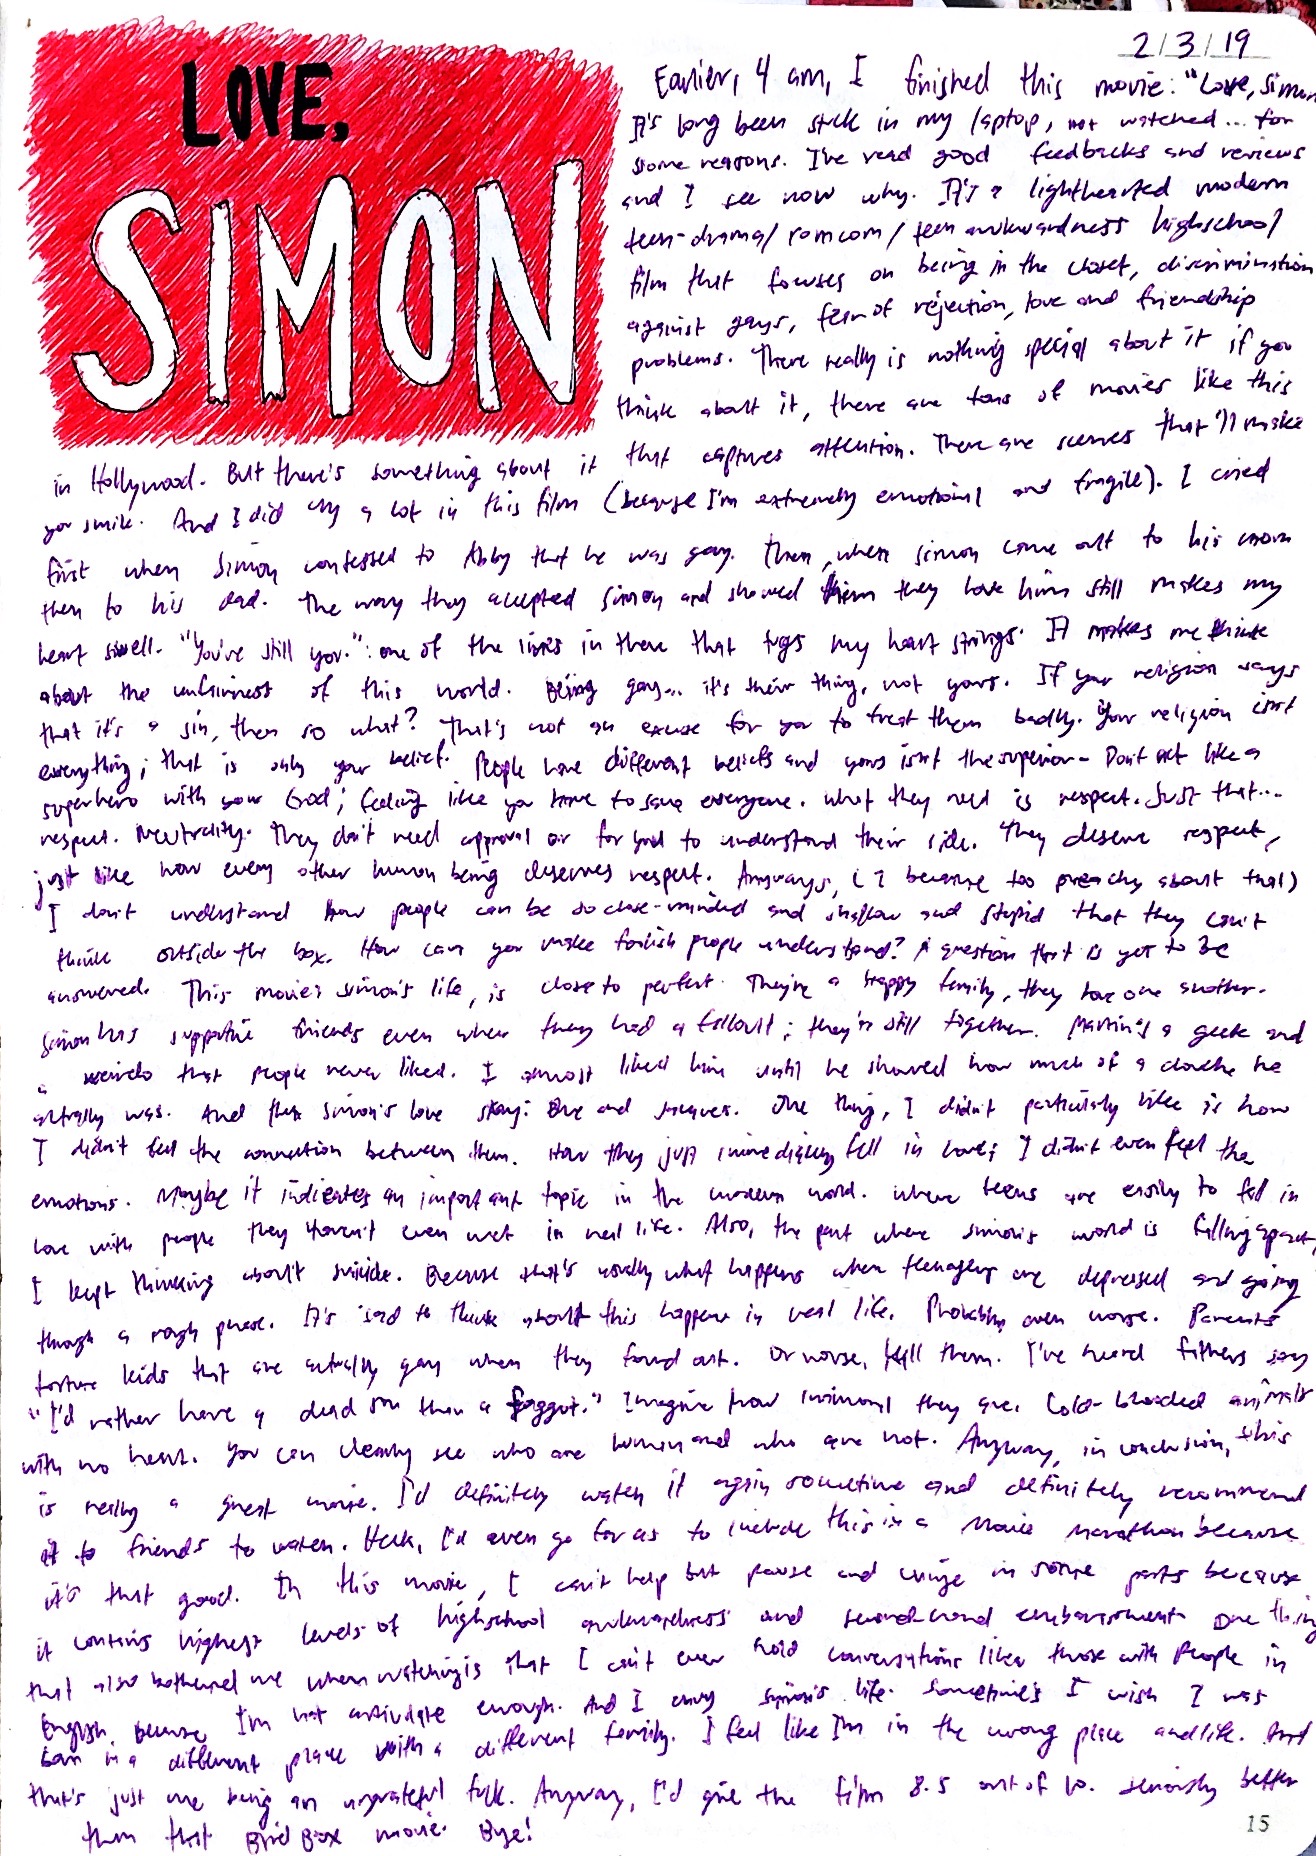 LOVE,
SIMON
2/3/19
Earlier, 4 am, I finished this movie: "Love, Simon
It's long been stuck in my laptop, not watched... for
some reasons. I've read good feedbacks and reviews
and I see now why. It's a lighthearted modern
teen-drama/romcom/teen awkwardness highschool
film that focuses on being in the closet, discrimination
against gays, fear of rejection, love and friendship
problems. There really is nothing special about it if you
think about it, there are tons of movies like this
in Hollywood. But there's something about it that captures attention. There are scenes that'll make
you smile. And I did cry a lot in this film (because I'm extremely emotional and fragile). I cried
first when Simon confessed to Abby that he was gay. Then, when Simon came out to his mom
then to his dad. The way they accepted Simon and showed him they love him still makes my
heart swell. "You've still you.": one of the lines in there that tugs my heart strings. It makes me think
about the unfairness of this world. Being gay... it's their thing, not yours. If your religion says
that it's a sin, then so what? That's not an excuse for you to treat them badly. Your religion isn't
everything; that is only your belief. People have different beliefs and yours isn't the superior- Don't act like a
superhero with your God; feeling like you have to save everyone. What they need is respect. Just that...
respect. Neutrality. They don't need approval or for you to understand their side. They deserve respect,
just like how every other human being deserves respect. Anyways, (I became too preachy about that)
I don't understand how people can be so close-minded and shallow and stupid that they can't
think outside the box. How can you make foolish people understand? A question that is yet to be
answered. This movie's Simon's life, is close to perfect. They're a happy family, they love one another.
Simon has supportive friends even when they had a fallout; they're still together. Martin's a geek and
a weirdo that people never liked. I almost liked him until he showed how much of a douche he
actually was. And then Simon's love story: Blue and Jacques. One thing, I didn't particularly like is how
I didn't feel the connection between them. How they just immediately fell in love; I didn't even feel the
emotions. Maybe it indicates an important topic in the modern world. Where teens are easily to fall in
love with people they haven't even met in real life. Also, the part where Simon's world is falling apart,
I kept thinking about suicide. Because that's usually what happens when teenagers are depressed and going
through a rough phase. It's sad to think about this happens in real life. Probably even worse. Parents
torture kids that are actually gay when they found out. Or worse, kill them. I've heard fathers say
"I'd rather have a dead son than a faggot." Imagine how inhumane they are. Cold-blooded animals
with no heart. You can clearly see who are human and who are not. Anyway, in conclusion, this
is really a great movie. I'd definitely watch it again sometime and definitely recommend
it to friends to watch. Heck, I'd even go far as to include this in a movie marathon because
it's that good. In this movie, I can't help but pause and cringe in some parts because
it contains highest levels of highschool awkwardness and second-hand embarrassment. One thing
that also bothered me when watching is that I can't ever hold conversations like those with people in
English because I'm not articulate enough. And I envy Simon's life. Sometimes I wish I was
born in a different place with a different family. I feel like I'm in the wrong place and life. And
that's just me being an ungrateful fuck. Anyway, I'd give the film 8.5 out of 10. Seriously better
than that Bird Box movie. Bye!
15